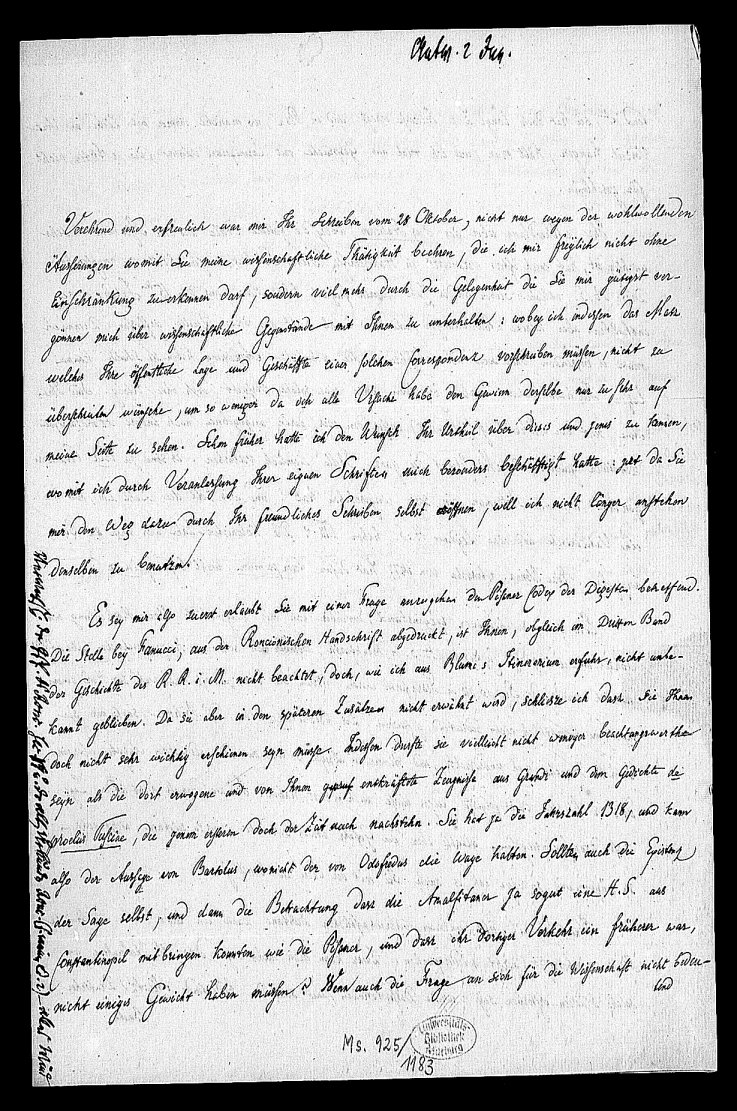 Antw. 2 Jan.
Verehrend und erfreulich war mir Ihr Schreiben vom 28 Oktober, nicht nur wegen der wohlwollenden
Äusserungen womit Sie meine wissenschaftliche Thätigkeit beehren, die ich mir freylich nicht ohne
Einschränkung zuerkennen darf, sondern vielmehr durch die Gelegenheit die Sie mir gütigst ver-
gönnen mich über wissenschaftliche Gegenstände mit Ihnen zu unterhalten: wobey ich indessen das Mass
welches Ihre öffentliche Lage und Geschäffte einer solchen Correspondenz vorschreiben müssen, nicht zu
überschreiten wünsche, um so weniger da ich alle Ursache habe den Gewinn derselben nur zu sehr auf
meine Seite zu sehen. Schon früher hatte ich den Wunsch Ihr Urtheil über dieses und jenes zu kennen,
womit ich durch Veranlassung Ihrer eignen Schriften mich besonders beschäfftigt hatte: jetzt da Sie
mir den Weg dazu durch Ihr freundliches Schreiben selbst eröffnen, will ich nicht länger anstehen
denselben zu benutzen.
Es sey mir also zuerst erlaubt Sie mit einer Frage anzugehen den Pisaner Codex der Digesten betreffend.
Die Stelle bey Fanucci, aus der Roncionischen Handschrift abgedruckt, ist Ihnen, obgleich im Dritten Band
der Geschichte des R. R. i. M. nicht beachtet, doch, wie ich aus Blume's Itinerarium erfuhr, nicht unbe-
kannt geblieben. Da sie aber in den späteren Zusätzen nicht erwähnt wird, schliesse ich dass sie Ihnen
doch nicht sehr wichtig erschienen seyn müsse. Indessen dürfte sie vielleicht nicht weniger beachtungswerth
seyn als die dort erwogene und von Ihnen entkräftete Zeugnisse aus Grandi und dem Gedichte de
proeliis Tusciae, die jenem ersteren doch der Zeit nach nachstehn. Sie hat ja die Jahrszahl 1318, und kann
also der Aussage von Bartolus, wo nicht der von Odofredus die Wage halten. Sollten auch die Existenz
der Sage selbst, und dann die Betrachtung dass die Amalfitaner ja sogut eine H.S. aus
Constantinopel mitbringen konnten wie die Pisaner, und dass ihr dortiger Verkehr ein früherer war,
nicht einiges Gewicht haben müssen? Wenn auch die Frage an sich für die Wissenschaft nicht bedeu-
tend
Ms. 925/
1183
Universitäts
Bibliothek
Marburg